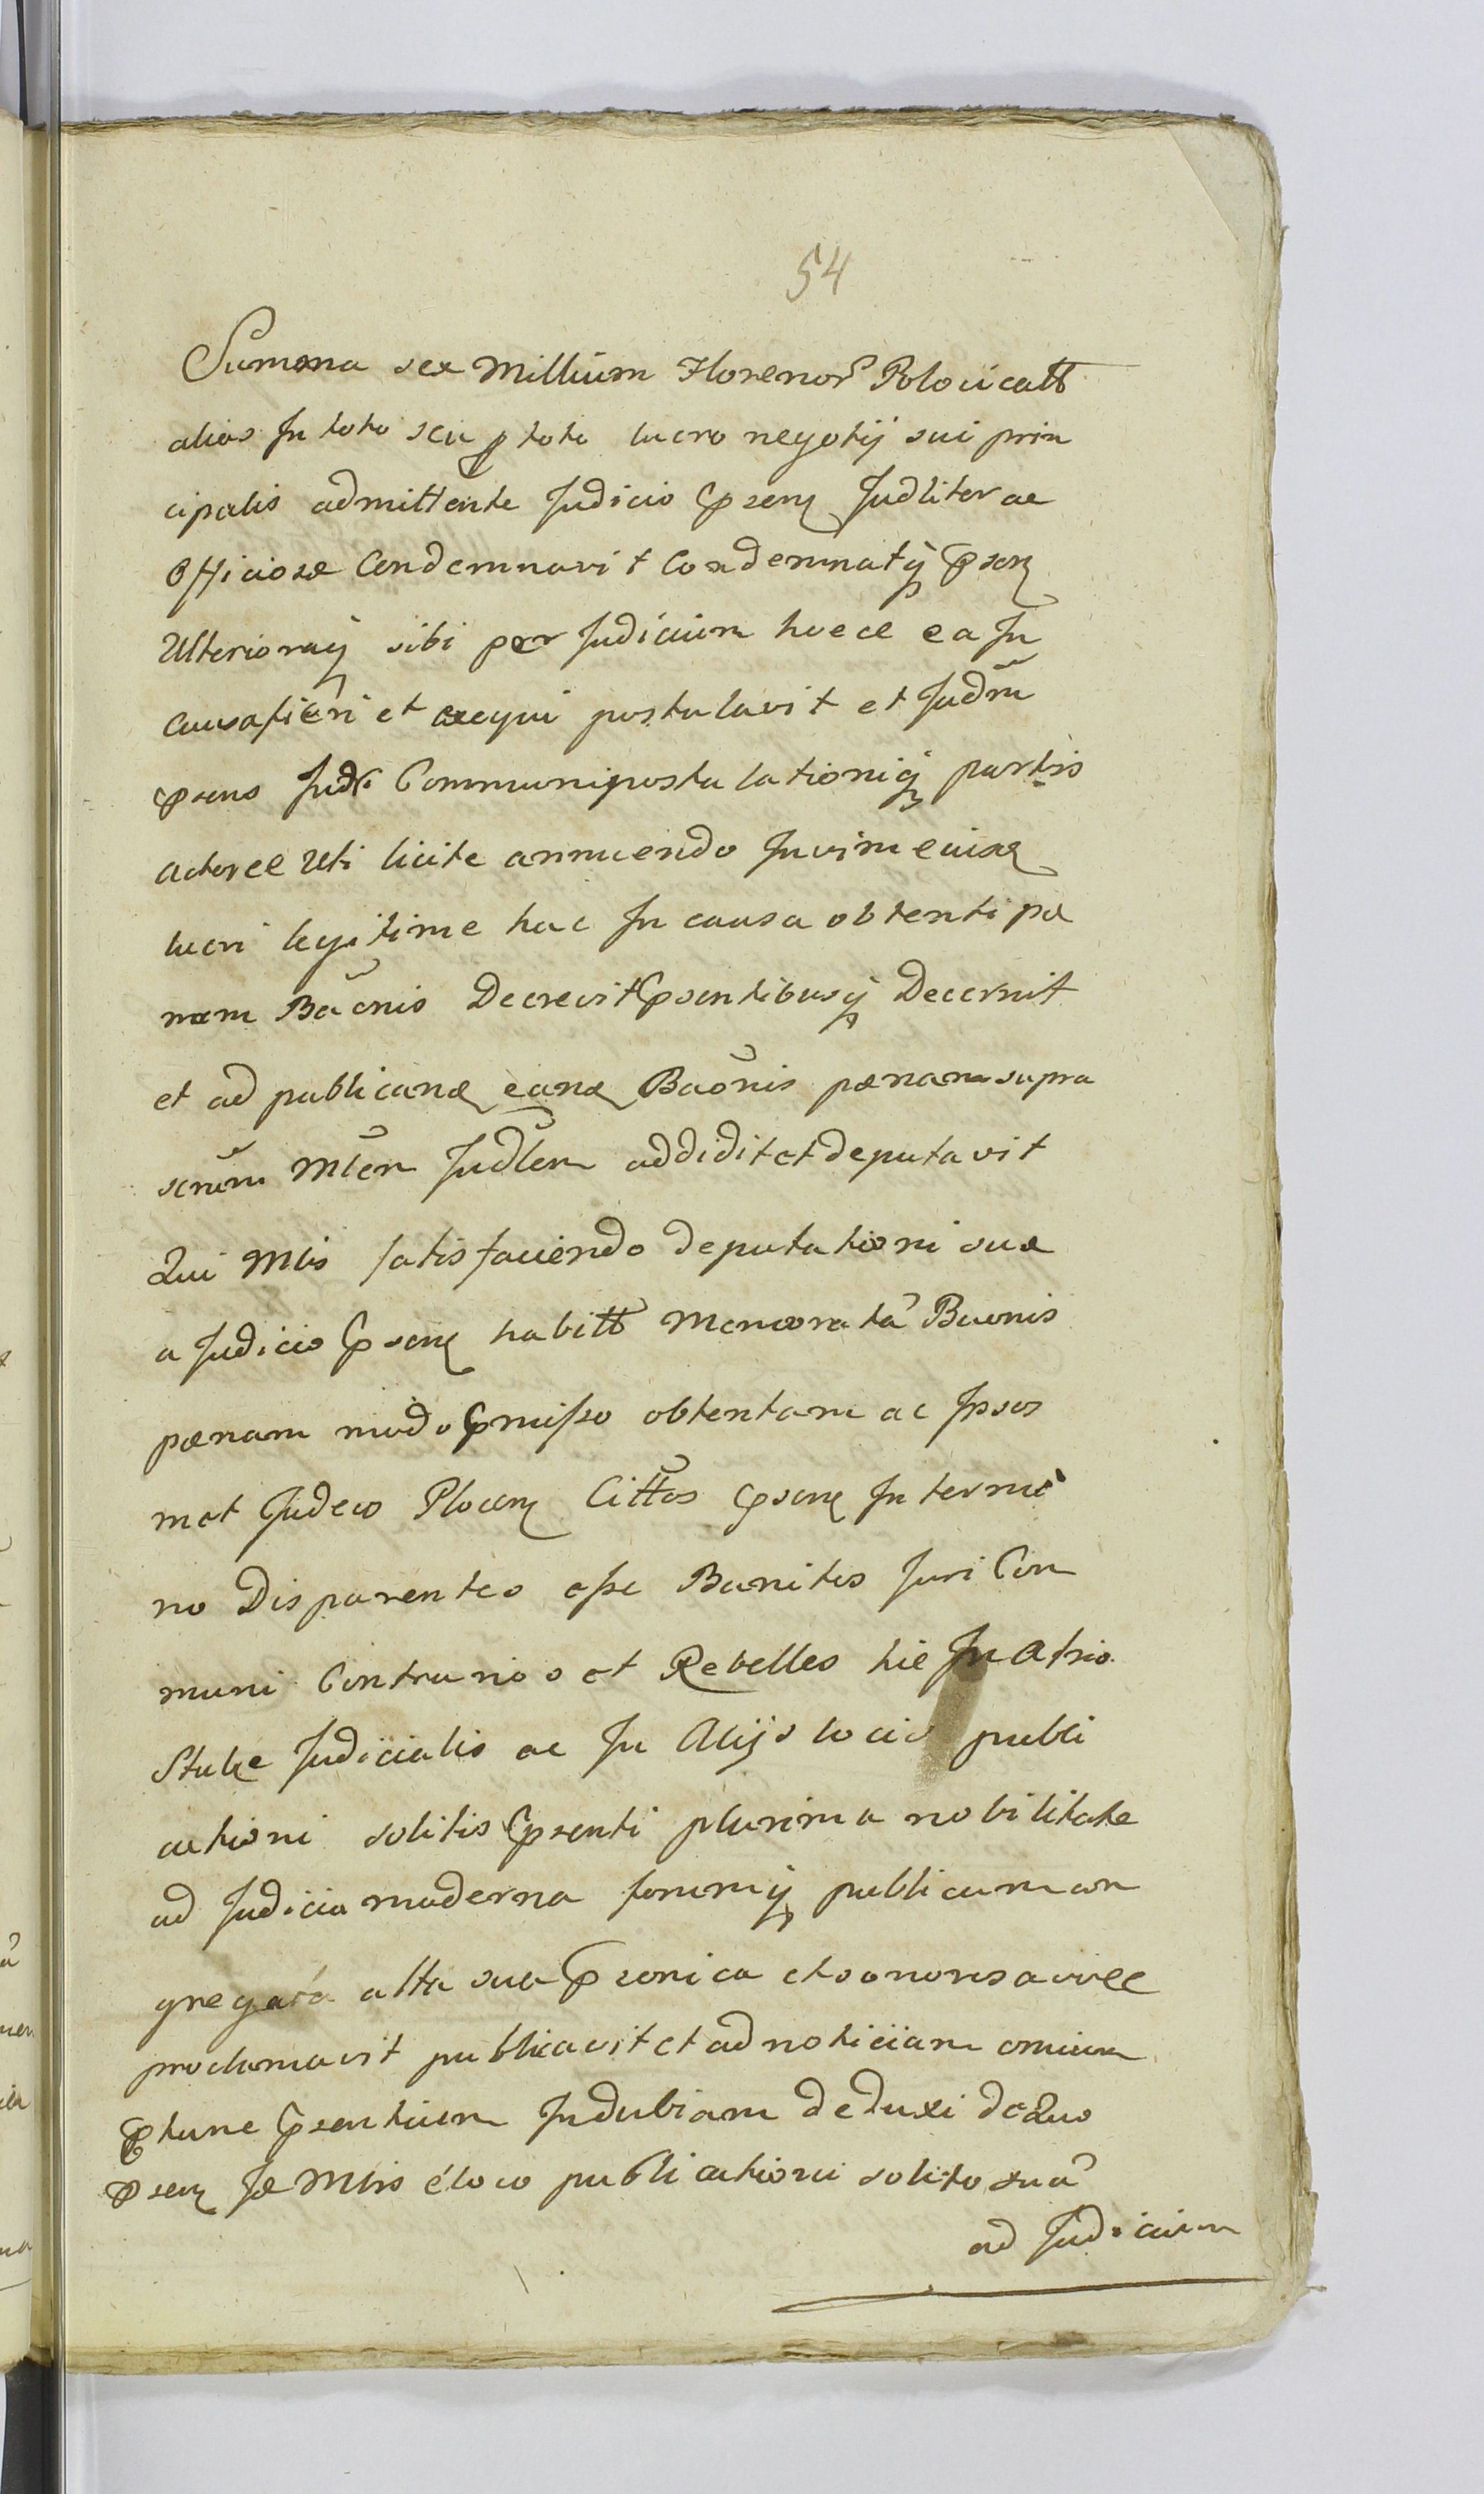 54
Summa sex Millium Florenor Polocicatt
alias In toto seu p toto lucro negotij sui prin
cipalis admittente Judicio psens Judliter ac
Officiose Condemnavit Condemnatq psens
Ulteriorq sibi per Judicium hocce ea In
causa fieri et exequi postulavit et Judm
psens Judi Communi postulationiq partis
actoree Uti licite annuendo In vim
lucri legitime hac In causa obtenti pæ
nam Baonis Decrevit psentibusq Decernit
et ad publicand eand Baonis pænam supra
scrum Mlem Judlem addidit et deputavit
Qui Mlis satisfaciendo deputationi suæ
a Judicio psens habitt Memoratã Baonis
pænam modo pmisso obtentam ac Ipsos
met Judeos Plocens Cittos psens In termi
no Disparentes esse Banitos Juri Com
muni Contrarios et Rebelles hic In Atrio
Stubæ Judicialis ac In Alijs locis publi
cationi solitis psenti plurima nobilitate
ad Judicia moderna forumq publicum con
gregata alta sua psonica et sonorosa voce
proclamavit publicavit et ad noticiam omnium
ptunc psentium Indubiam deduxi de Quo
psens Je Mlis é loco publicationi solito suã
ad Judicium